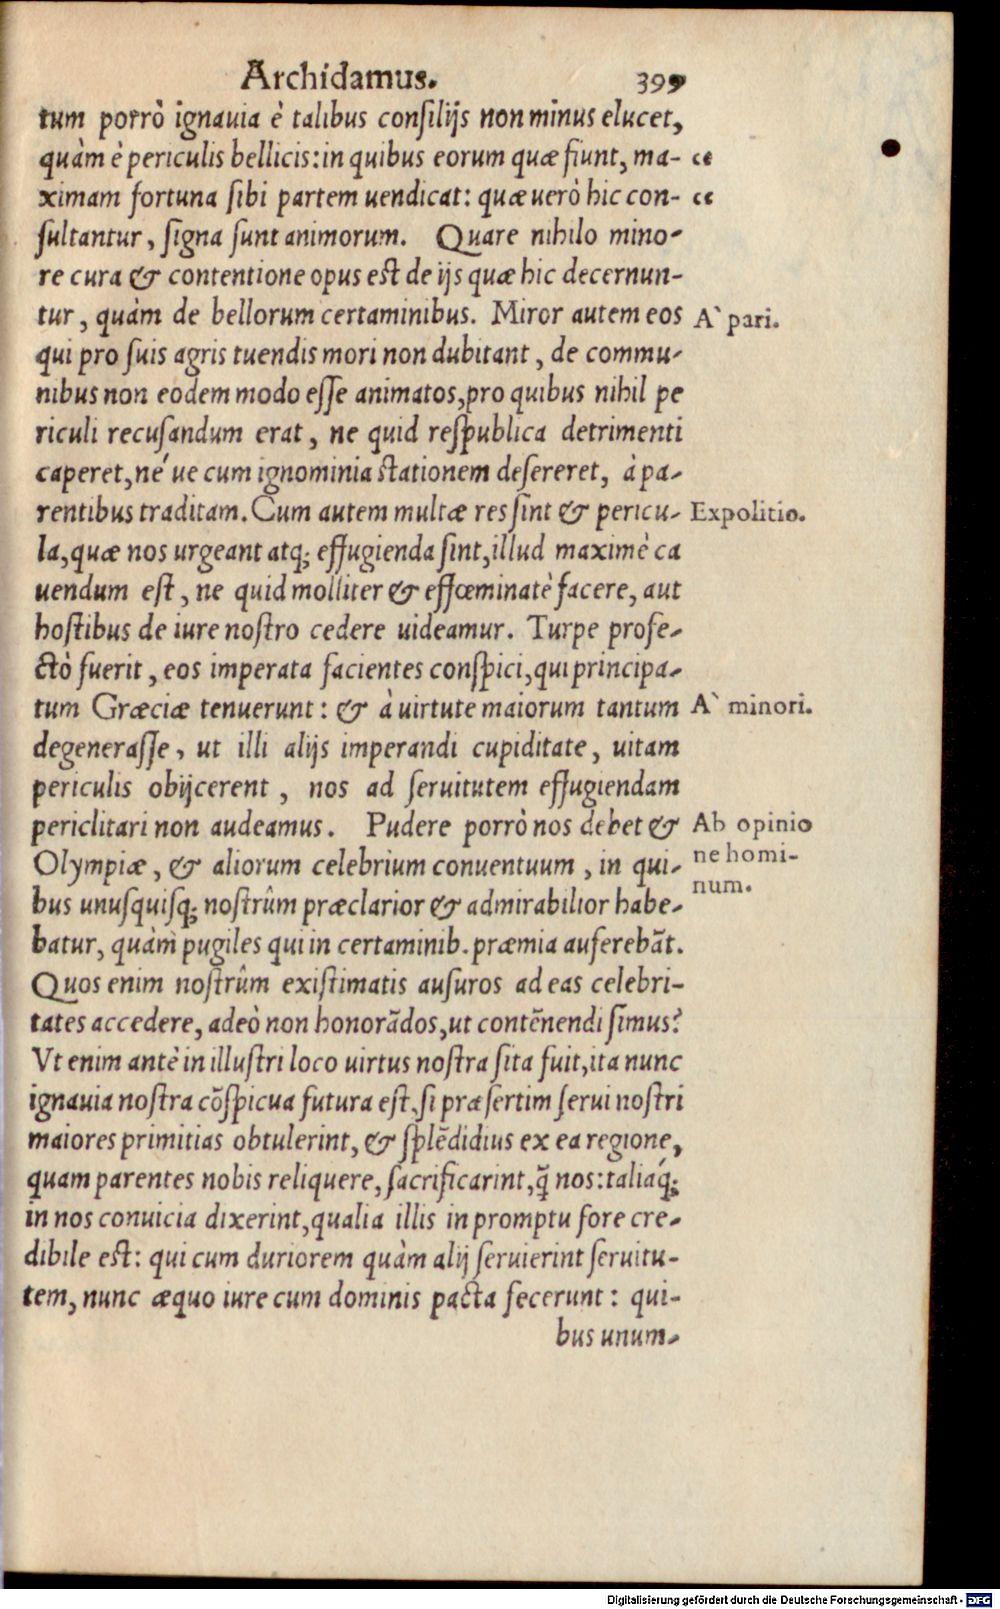 Archidamus. 399
tum porrò ignauia è talibus consilijs non minus elucet,
quàm è periculis bellicis: in quibus eorum quæ fiunt, ma- “
ximam fortuna sibi partem uendicat: quæ uerò hic con- “
sultantur, signa sunt animorum. Quare nihilo mino-
re cura & contentione opus est de ijs quæ hic decernun-
tur, quàm de bellorum certaminibus. Miror autem eos
A` pari.
qui pro suis agris tuendis mori non dubitant, de commu-
nibus non eodem modo esse animatos, pro quibus nihil pe
riculi recusandum erat, ne quid respublica detrimenti
caperet, né ue cum ignominia stationem desereret, à pa-
rentibus traditam. Cum autem multæ res sint & pericu-
Expolitio.
la, quæ nos urgeant atq; effugienda sint, illud maximè ca
uendum est, ne quid molliter & effœminatè facere, aut
hostibus de iure nostro cedere uideamur. Turpe profe-
ctò fuerit, eos imperata facientes conspici, qui principa-
tum Græciæ tenuerunt: & à uirtute maiorum tantum
A` minori.
degenerasse, ut illi alijs imperandi cupiditate, uitam
periculis obijcerent, nos ad seruitutem effugiendam
periclitari non audeamus. Pudere porrò nos debet &
Ab opinio
ne homi-
num.
Olympiæ, & aliorum celebrium conuentuum, in qui-
bus unusquisq; nostrûm præclarior & admirabilior habe-
batur, quàm pugiles qui in certaminib. præmia auferebãt.
Quos enim nostrûm existimatis ausuros ad eas celebri-
tates accedere, adeò non honorãdos, ut contẽnendi simus?
Vt enim antè in illustri loco uirtus nostra sita fuit, ita nunc
ignauia nostra cõspicua futura est, si præsertim serui nostri
maiores primitias obtulerint, & splẽdidius ex ea regione,
quam parentes nobis reliquere, sacrificarint, q̃ nos: taliáq;
in nos conuicia dixerint, qualia illis in promptu fore cre-
dibile est: qui cum duriorem quàm alij seruierint seruitu-
tem, nunc æquo iure cum dominis pacta fecerunt: qui-
bus unum-
Digitalisierung gefördert durch die Deutsche Forschungsgemeinschaft - DFG